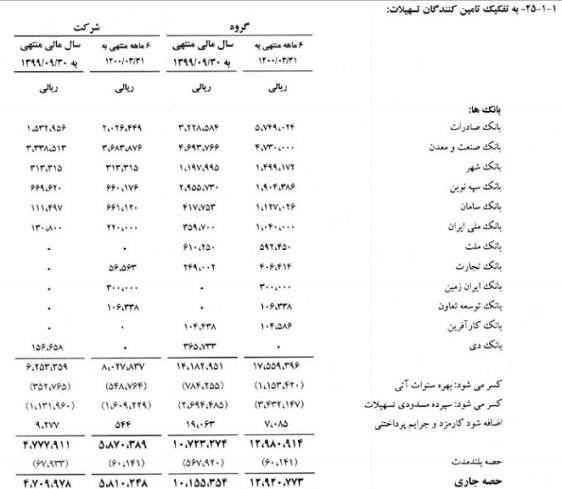 ۲۵-۱-۱- به تفکیک تامین کنندگان تسهیلات:
گروه شرکت
۶ ماهه منتهی به ۱۴۰۰/۰۳/۳۱ سال مالی منتهی به ۱۳۹۹/۰۹/۳۰ ۶ ماهه منتهی به ۱۴۰۰/۰۳/۳۱ سال مالی منتهی به ۱۳۹۹/۰۹/۳۰
ریالی ریالی ریالی ریالی
بانک ها:
بانک صادرات ۵,۷۴۹,۰۲۴ ۳,۲۲۸,۵۸۴ ۲,۰۲۶,۴۴۹ ۱,۵۳۲,۹۵۶
بانک صنعت و معدن ۴,۷۳۰,۰۰۰ ۴,۶۹۳,۷۶۶ ۳,۶۸۳,۸۷۶ ۳,۳۳۸,۵۱۳
بانک شهر ۱,۴۹۹,۱۷۲ ۱,۱۹۷,۹۹۵ ۳۱۳,۳۱۵ ۳۱۳,۳۱۵
بانک سپه نوین ۱,۹۰۴,۳۸۶ ۲,۹۵۵,۷۳۰ ۶۶۰,۱۷۶ ۶۶۹,۶۲۰
بانک سامان ۱,۱۲۷,۰۲۶ ۴۱۷,۷۵۳ ۶۶۱,۱۲۰ ۱۱۱,۴۹۷
بانک ملی ایران ۱,۰۴۰,۰۰۰ ۳۵۹,۷۰۰ ۲۲۰,۰۰۰ ۱۳۰,۸۰۰
بانک ملت ۵۹۲,۴۵۰ ۶۱۰,۲۵۰ ۰ ۰
بانک تجارت ۴۰۶,۴۱۴ ۲۴۹,۰۰۲ ۵۶,۵۶۳ ۰
بانک ایران زمین ۳۰۰,۰۰۰ ۰ ۳۰۰,۰۰۰ ۰
بانک توسعه تعاون ۱۰۶,۳۳۸ ۰ ۱۰۶,۳۳۸ ۰
بانک کارآفرین ۱۰۴,۵۸۶ ۱۰۴,۴۳۸ ۰ ۰
بانک دی ۰ ۳۶۵,۷۳۳ ۰ ۱۵۶,۶۵۸
۱۷,۵۵۹,۳۹۶ ۱۴,۱۸۲,۹۵۱ ۸,۰۲۷,۸۳۷ ۶,۲۵۳,۳۵۹
کسر می شود: بهره سنوات آتی (۱,۱۵۳,۴۲۰) (۷۸۴,۲۵۵) (۵۴۸,۷۶۴) (۳۵۲,۷۶۵)
کسر می شود: سپرده مسدودی تسهیلات (۳,۴۳۲,۱۴۷) (۲,۶۹۴,۴۸۵) (۱,۶۰۹,۲۲۹) (۱,۱۳۱,۹۶۰)
اضافه شود کارمزد و جرایم پرداختنی ۷,۰۸۵ ۱۹,۰۶۳ ۵۴۴ ۹,۲۷۷
۱۲,۹۸۰,۹۱۴ ۱۰,۷۲۳,۲۷۴ ۵,۸۷۰,۳۸۹ ۴,۷۷۷,۹۱۱
حصه بلندمدت (۶۰,۱۴۱) (۵۶۷,۹۲۰) (۶۰,۱۴۱) (۶۷,۹۳۳)
حصه جاری ۱۲,۹۲۰,۷۷۳ ۱۰,۱۵۵,۳۵۴ ۵,۸۱۰,۲۴۸ ۴,۷۰۹,۹۷۸